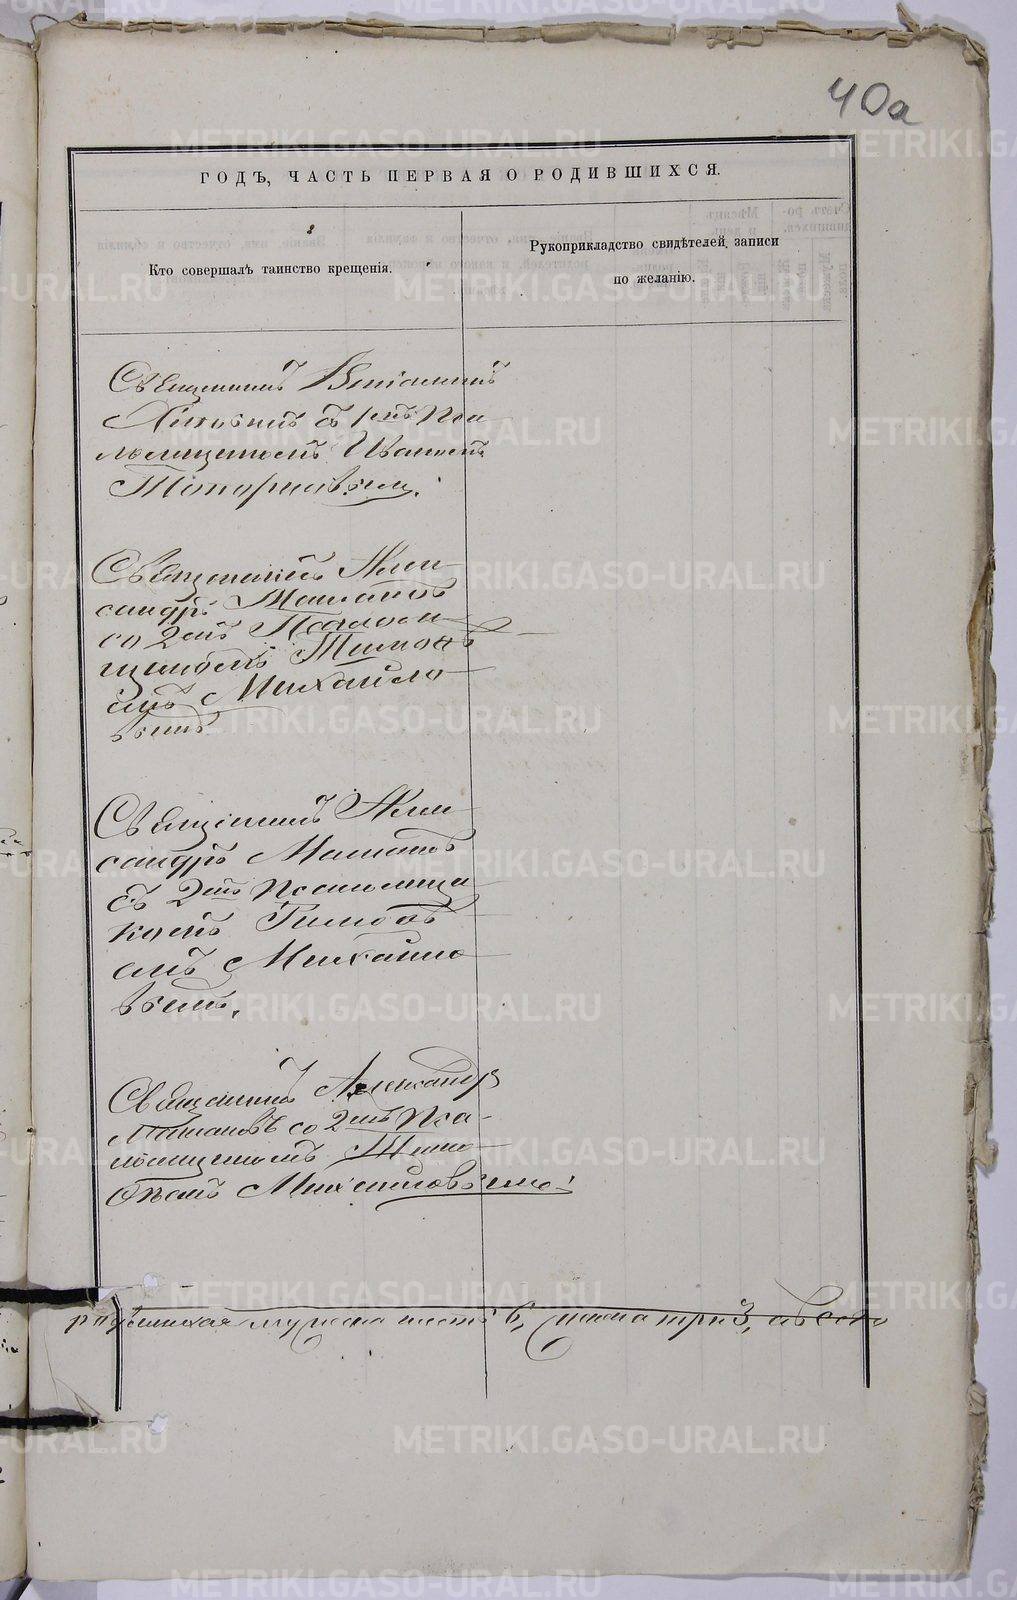 40а
ГОДЪ, ЧАСТЬ ПЕРВАЯ О РОДИВШИХСЯ.
Кто совершалъ таинство крещенія.
Рукоприкладство свидѣтелей записи
по желанію.
Священникъ
съ 1мъ Пса
ломщикомъ Иваномъ
Топорковымъ.
Священникъ Алек
сандръ
со 2мъ Псаломъ
щикомъ
Михайло
вымъ
Священникъ Алек
сандръ
съ 2мъ псаломщи
комъ Тимоѳ
емъ Михайло
вымъ.
Священникъ Александръ
со 2мъ Пса-
ломщикомъ Тимо
ѳеемъ Михайловымъ.
родившихся мужеска шесть 6, три 3, а всего
METRIKI.GASO-URAL.RU